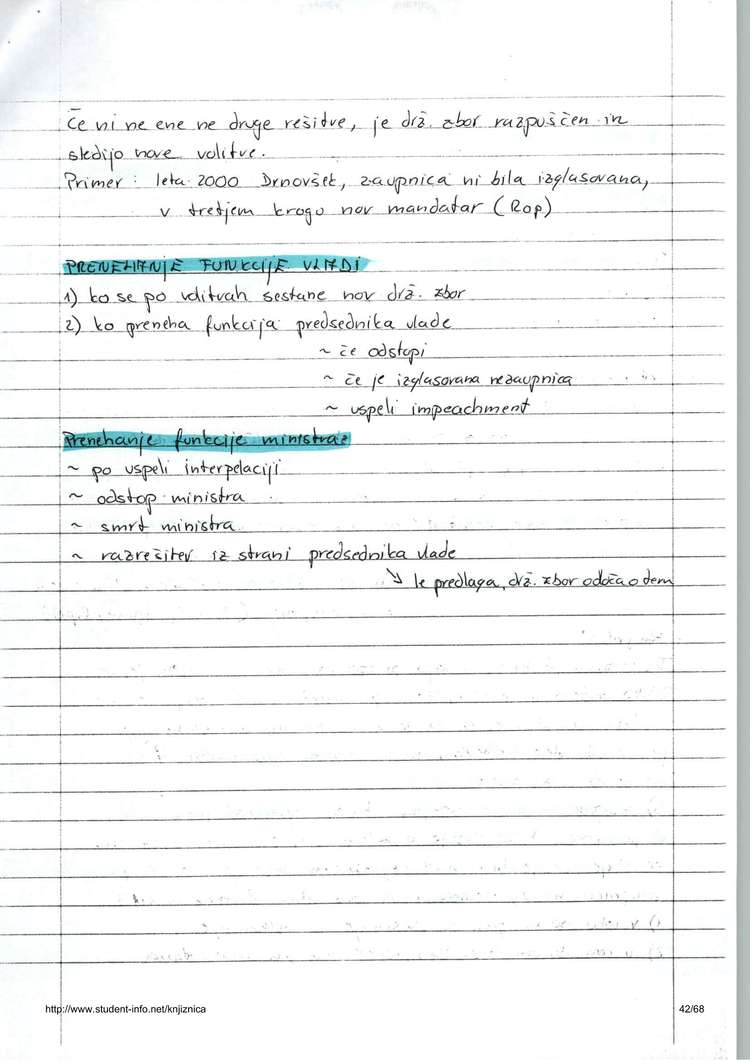 Če ni ne ene ne druge rešitve, je drž. zbor razpuščen in
sledijo nove volitve.
Primer: leta 2000 Drnovšek, zaupnica ni bila izglasovana,
v tretjem krogo nov mandatar (Rop)
PRENEHANJE FUNKCIJE VLADI
1) ko se po volitvah sestane nov drž. zbor
2) ko preneha funkcija predsednika vlade
~ če odstopi
~ če je izglasovana nezaupnica
~ uspeli impeachment
Prenehanje funkcije ministra:
~ po uspeli interpelaciji
~ odstop ministra
~ smrt ministra
~ razrešitev iz strani predsednika vlade
↘ le predlaga, drž. zbor odloča o tem
http://www.student-info.net/knjiznica
42/68